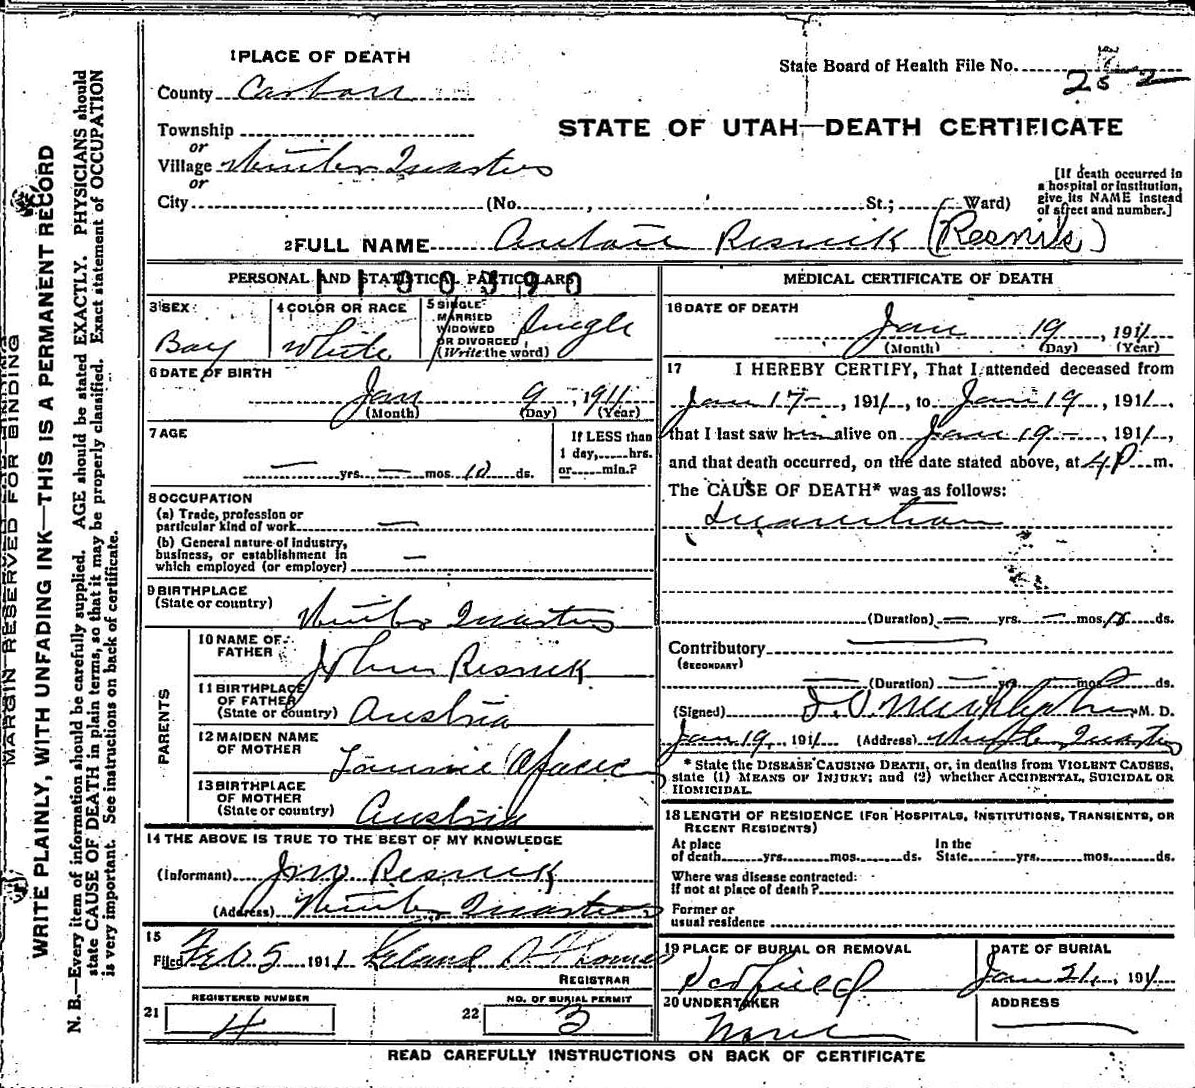 1 PLACE OF DEATH
State Board of Health File No. 252
County Carbon
STATE OF UTAH—DEATH CERTIFICATE
Township
or
Village Winter Quarters
or
City (No. St.; Ward)
[If death occurred in
a hospital or institution,
give its NAME instead
of street and number.]
2 FULL NAME Antone Resnik (Resnik)
PERSONAL AND STATISTICAL PARTICULARS
3 SEX
Boy
4 COLOR OR RACE
White
5 SINGLE
MARRIED
WIDOWED
OR DIVORCED
(Write the word)
Single
6 DATE OF BIRTH
Jan 9, 1911
(Month) (Day) (Year)
7 AGE
— yrs. — mos. 10 ds.
If LESS than
1 day, hrs.
or min.?
8 OCCUPATION
(a) Trade, profession or
particular kind of work —
(b) General nature of industry,
business, or establishment in
which employed (or employer) —
9 BIRTHPLACE
(State or country) Winter Quarters
PARENTS
10 NAME OF
FATHER John Resnik
11 BIRTHPLACE
OF FATHER
(State or country) Austria
12 MAIDEN NAME
OF MOTHER
13 BIRTHPLACE
OF MOTHER
(State or country) Austria
14 THE ABOVE IS TRUE TO THE BEST OF MY KNOWLEDGE
(Informant) Resnick
(Address) Winter Quarters
15
Filed Feb 5 1911 Leland Thomas
REGISTRAR
21 REGISTERED NUMBER
4
22 NO. OF BURIAL PERMIT
3
MEDICAL CERTIFICATE OF DEATH
16 DATE OF DEATH
Jan 19, 1911
(Month) (Day) (Year)
17 I HEREBY CERTIFY, That I attended deceased from
Jan 17—, 1911, to Jan 19, 1911,
that I last saw him alive on Jan 19—, 1911,
and that death occurred, on the date stated above, at 4 P m.
The CAUSE OF DEATH* was as follows:
Inanition
(Duration) — yrs. — mos. ds.
Contributory —
(SECONDARY)
— (Duration) — yrs. — mos. ds.
(Signed) M. D.
Jan 19, 1911 (Address) Winter Quarters
* State the DISEASE CAUSING DEATH, or, in deaths from VIOLENT CAUSES,
state (1) MEANS OF INJURY; and (2) whether ACCIDENTAL, SUICIDAL OR
HOMICIDAL.
18 LENGTH OF RESIDENCE (FOR HOSPITALS, INSTITUTIONS, TRANSIENTS, OR
RECENT RESIDENTS)
At place
of death yrs. mos. ds.
In the
State yrs. mos. ds.
Where was disease contracted
If not at place of death?
Former or
usual residence
19 PLACE OF BURIAL OR REMOVAL
Scofield
DATE OF BURIAL
Jan 21, 1911
20 UNDERTAKER
None
ADDRESS
—
READ CAREFULLY INSTRUCTIONS ON BACK OF CERTIFICATE
MARGIN RESERVED FOR BINDING
WRITE PLAINLY, WITH UNFADING INK—THIS IS A PERMANENT RECORD
N. B.—Every item of information should be carefully supplied. AGE should be stated EXACTLY. PHYSICIANS should
state CAUSE OF DEATH in plain terms, so that it may be properly classified. Exact statement of OCCUPATION
is very important. See instructions on back of certificate.